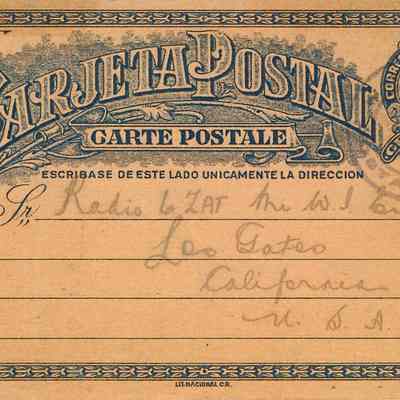 TARJETA POSTAL
CARTE POSTALE
ESCRIBASE DE ESTE LADO UNICAMENTE LA DIRECCION
Sr. Radio 6ZAT Mr W I
Los Gatos
California
U. S. A.
LIT. NACIONAL C.R.